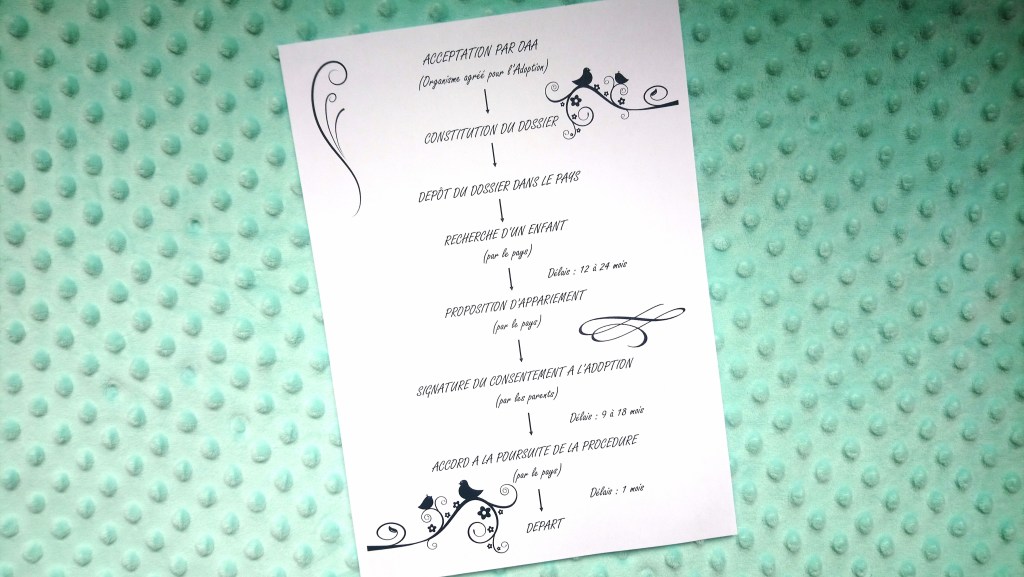 ACCEPTATION PAR OAA
(Organisme agréé pour l'Adoption)
CONSTITUTION DU DOSSIER
DEPÔT DU DOSSIER DANS LE PAYS
RECHERCHE D'UN ENFANT
(par le pays)
Délais : 12 à 24 mois
PROPOSITION D'APPARIEMENT
(par le pays)
SIGNATURE DU CONSENTEMENT A L'ADOPTION
(par les parents)
Délais : 9 à 18 mois
ACCORD A LA POURSUITE DE LA PROCEDURE
(par le pays)
Délais : 1 mois
DEPART